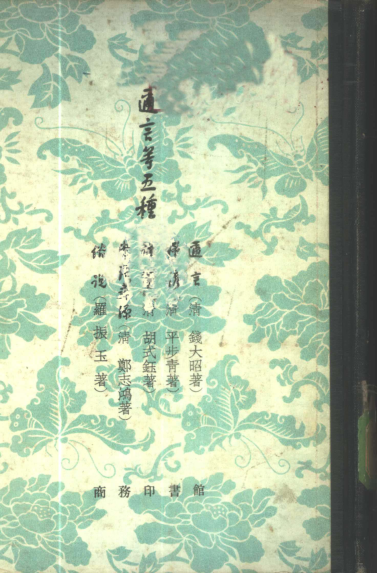 邇言等五種
邇言(清 錢大昭著)
釋諺(清 平步青著)
語竇(清 胡式鈺著)
常語尋源(清 鄭志鴻著)
俗說(羅振玉著)
商務印書館